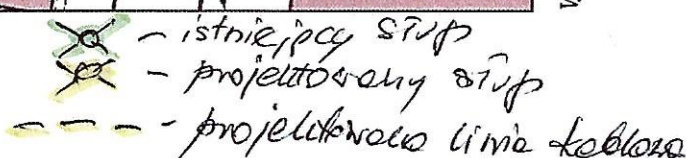 - istniejący słup
- projektowany słup
- projektowana linia kablowa